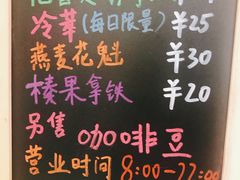 冷萃(每日限量) ¥25
燕麦花魁 ¥30
榛果拿铁 ¥20
另售 咖啡豆
营业时间 8:00-22:00